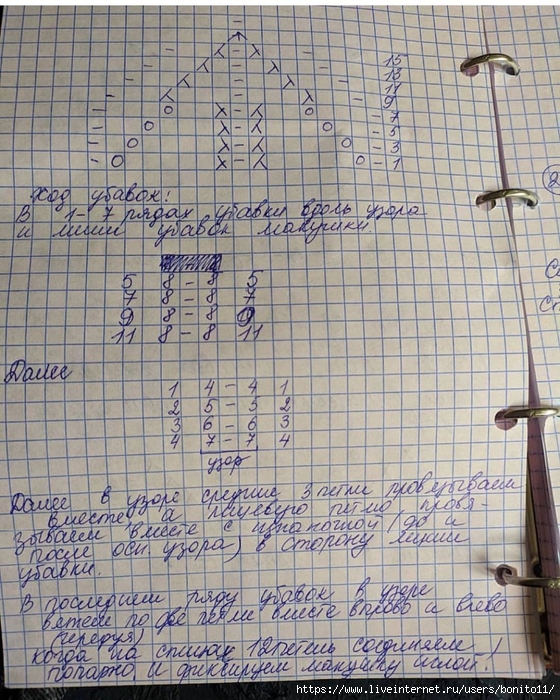 15
13
11
9
7
5
3
1
Ход убавок:
В 1-7 рядах убавки вдоль узора
и линии убавок макушки.
5 8 - 8 5
7 8 - 8 7
9 8 - 8 9
11 8 - 8 11
Далее
1 4 - 4 1
2 5 - 5 2
3 6 - 6 3
4 7 - 7 4
узор
Далее в узоре средние 3 петли провязываем
вместе, а лицевую петлю провя-
зываем вместе с изнаночной (до и
после оси узора) в сторону линии
убавки.
В последнем ряду убавок в узоре
вяжем по две петли вместе вправо и влево
(чередуя)
Когда на спицах 12 петель соединяем
попарно и фиксируем макушку иглой!
https://www.liveinternet.ru/users/bonito11/